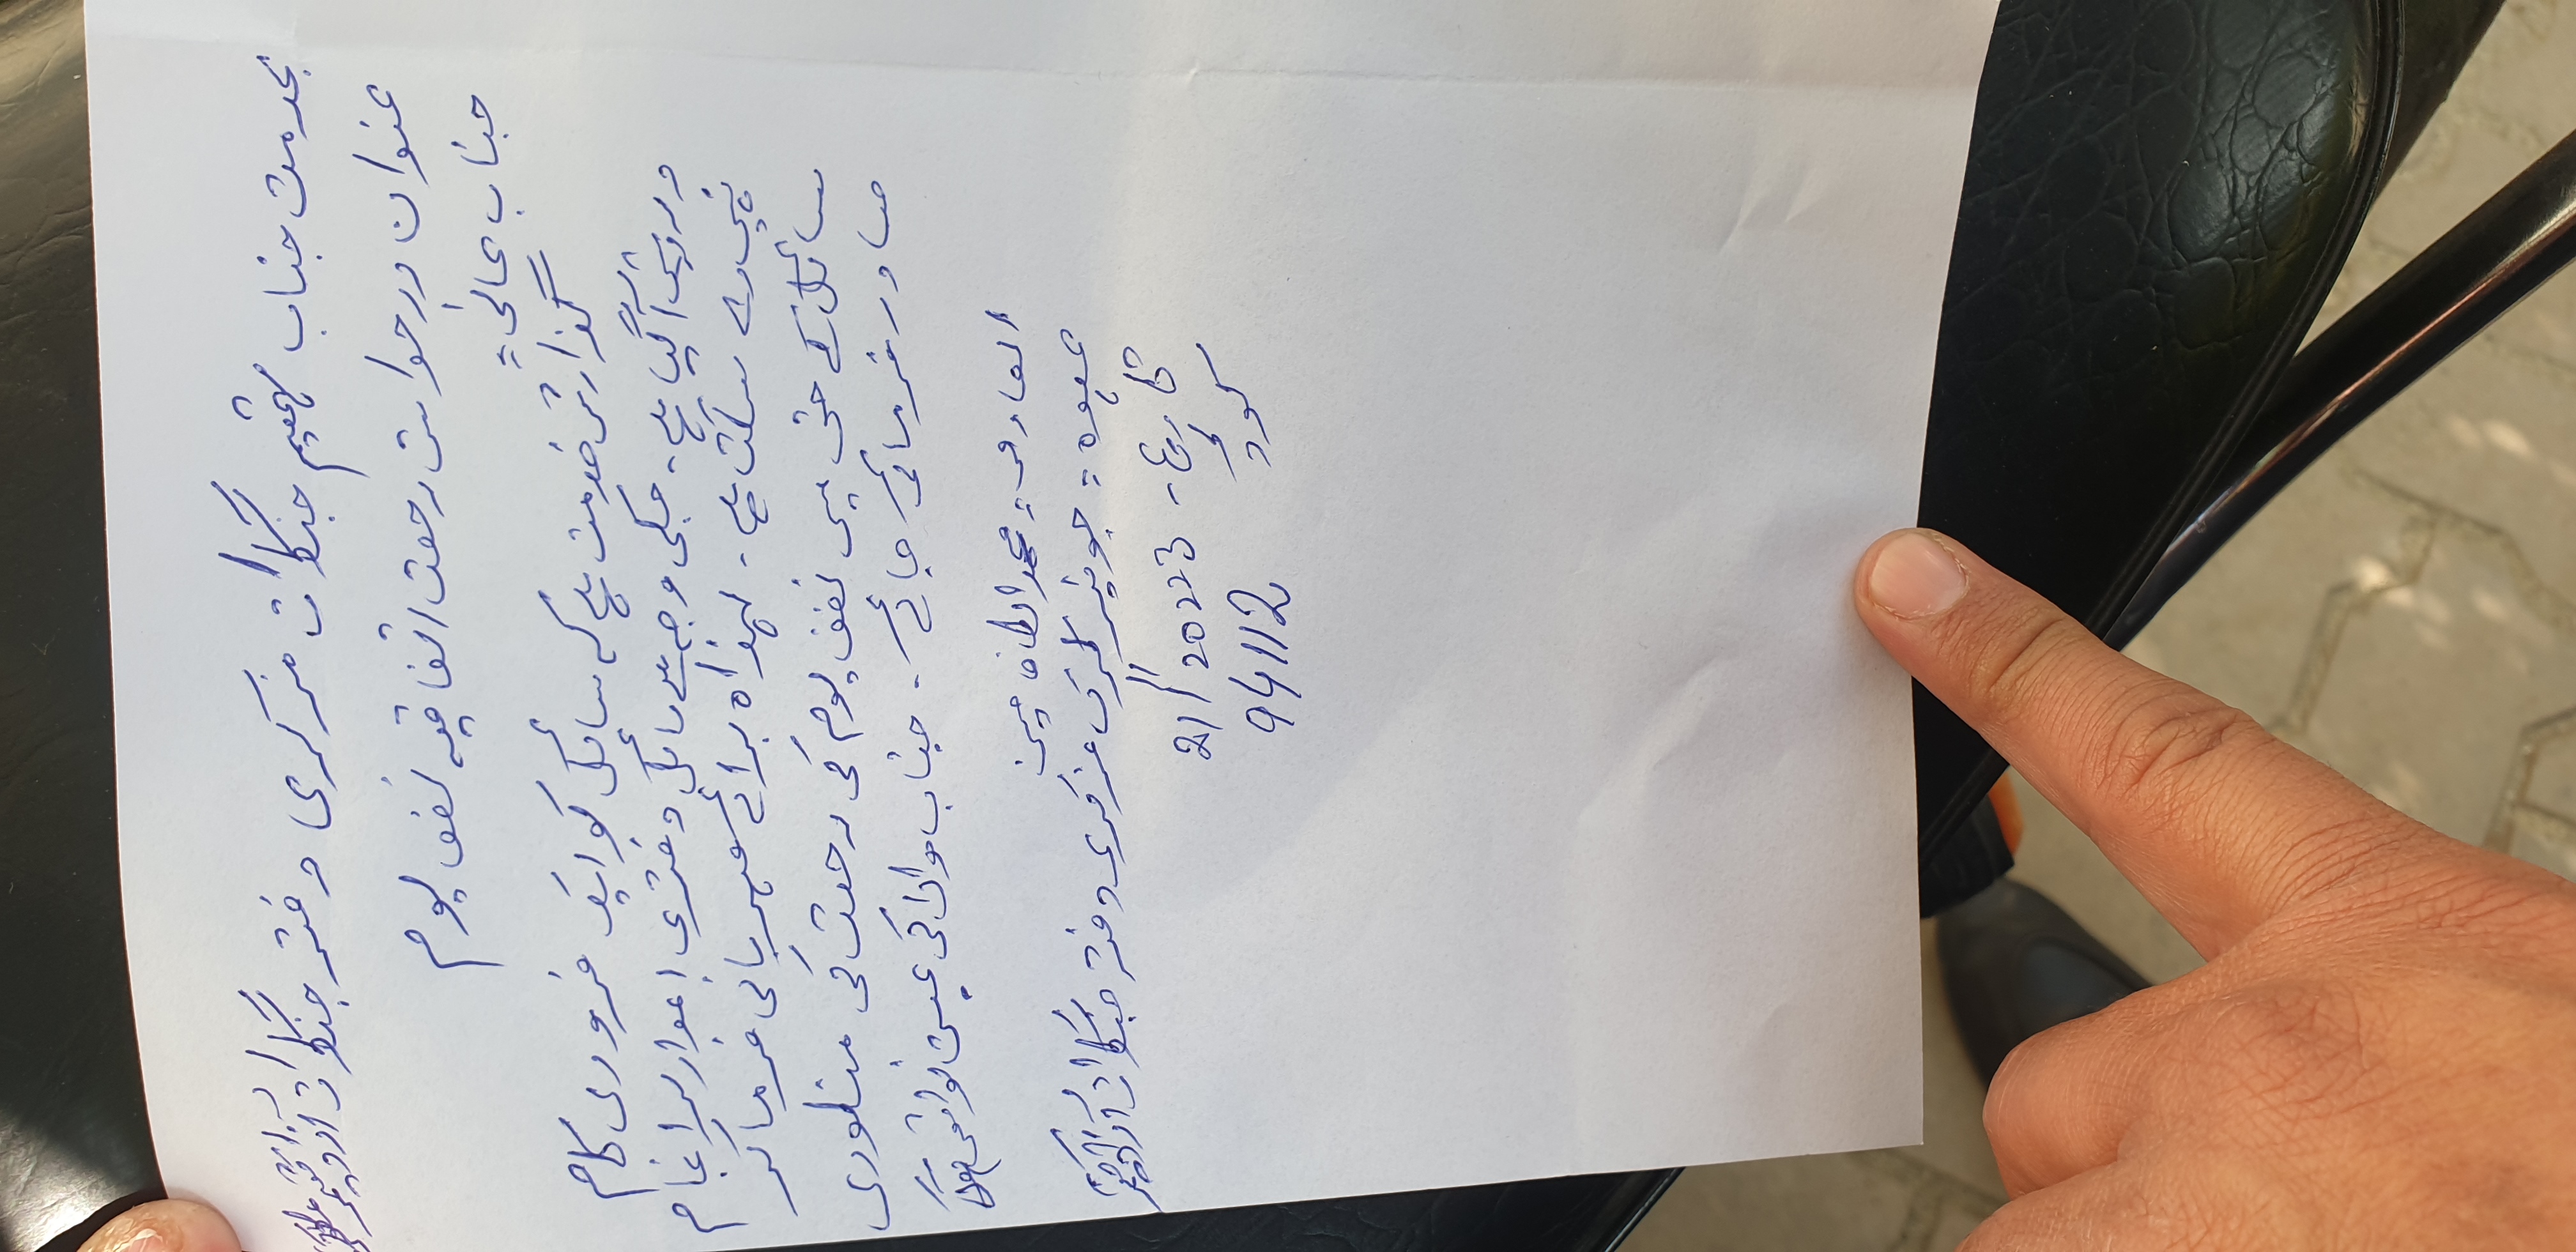 بخدمت جناب مہتمیم جنگلات مرکزی دفتر جنگلات آزاد کشمیر
عنوان درخواست رخصت اتفاقیہ نصف یوم
جناب عالی =
گذارش خدمت ہے کہ سائل کو ایک ضروری کام
درپیش آ گیا ہے۔ جسکی وجہ سے سائل دفتری امور سرانجام
نہیں دے سکتا ہے۔ لہذاہ برائے مہربانی فرما کر
سائل کے حق میں نصف یوم کی رخصت کی منظوری
صادر فرمائی جائے۔ جناب والا کی عین نوازش ہوگی
العارض = محمد الطاف
عہدہ = جونیئر کلرک مرکزی دفتر جنگلات آزاد کشمیر
تاریخ - 21/11/20223
کوڈ 94112